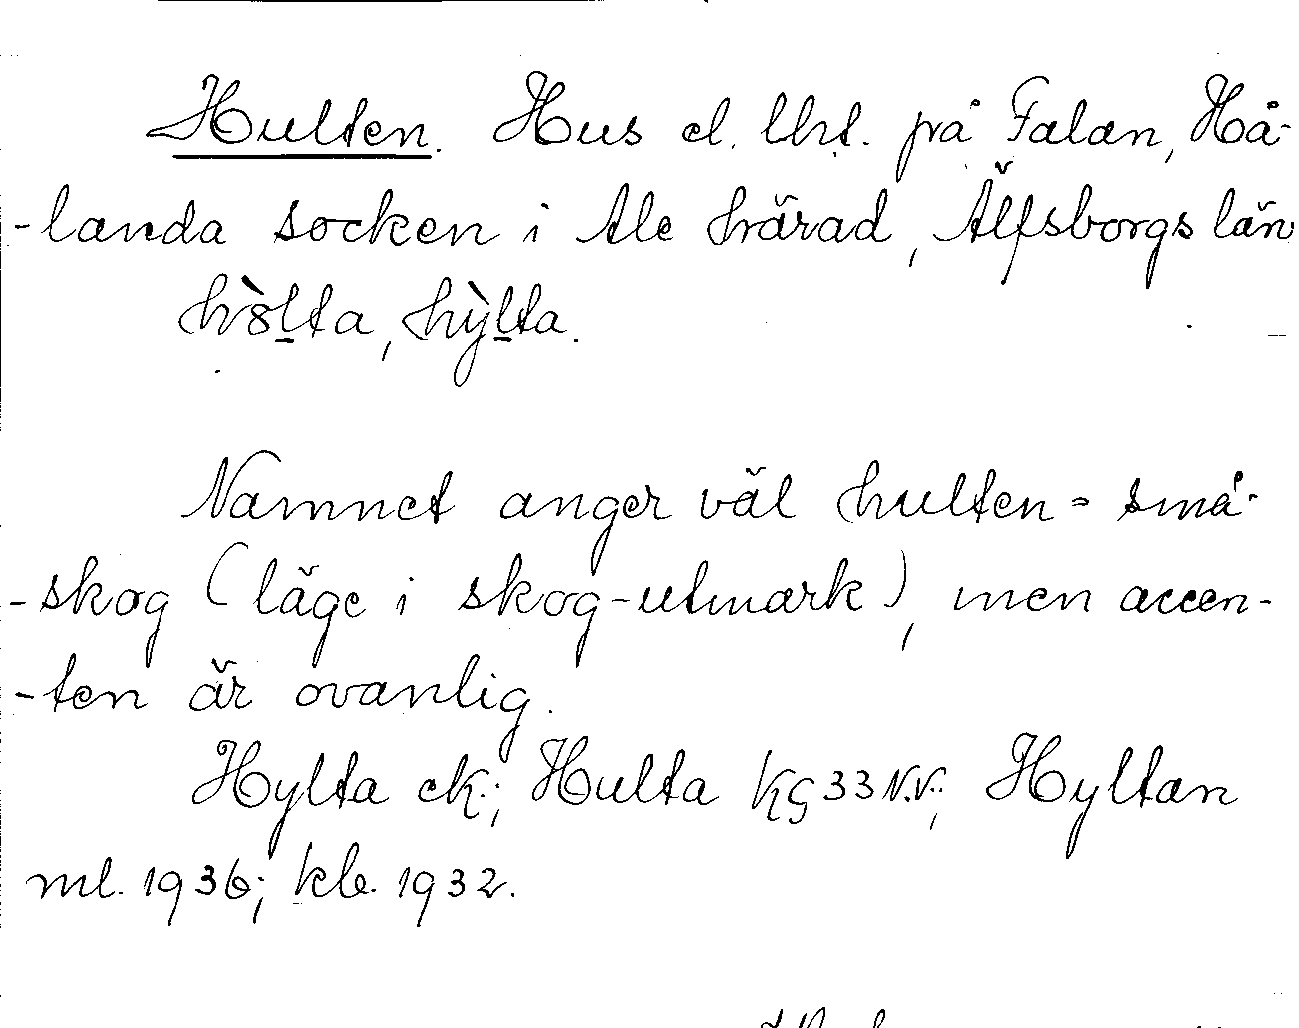 Hulten. Hus el. lht. på Falan, Hå-
-landa socken i Ale härad, Älfsborgs län
hòlta, hỳlta.
Namnet anger väl hulten = små-
-skog (läge i skog-utmark), men accen-
-ten är ovanlig.
Hylta ek.; Hulta KG 33 N.V.; Hyltan
ml. 1936; kb. 1932.